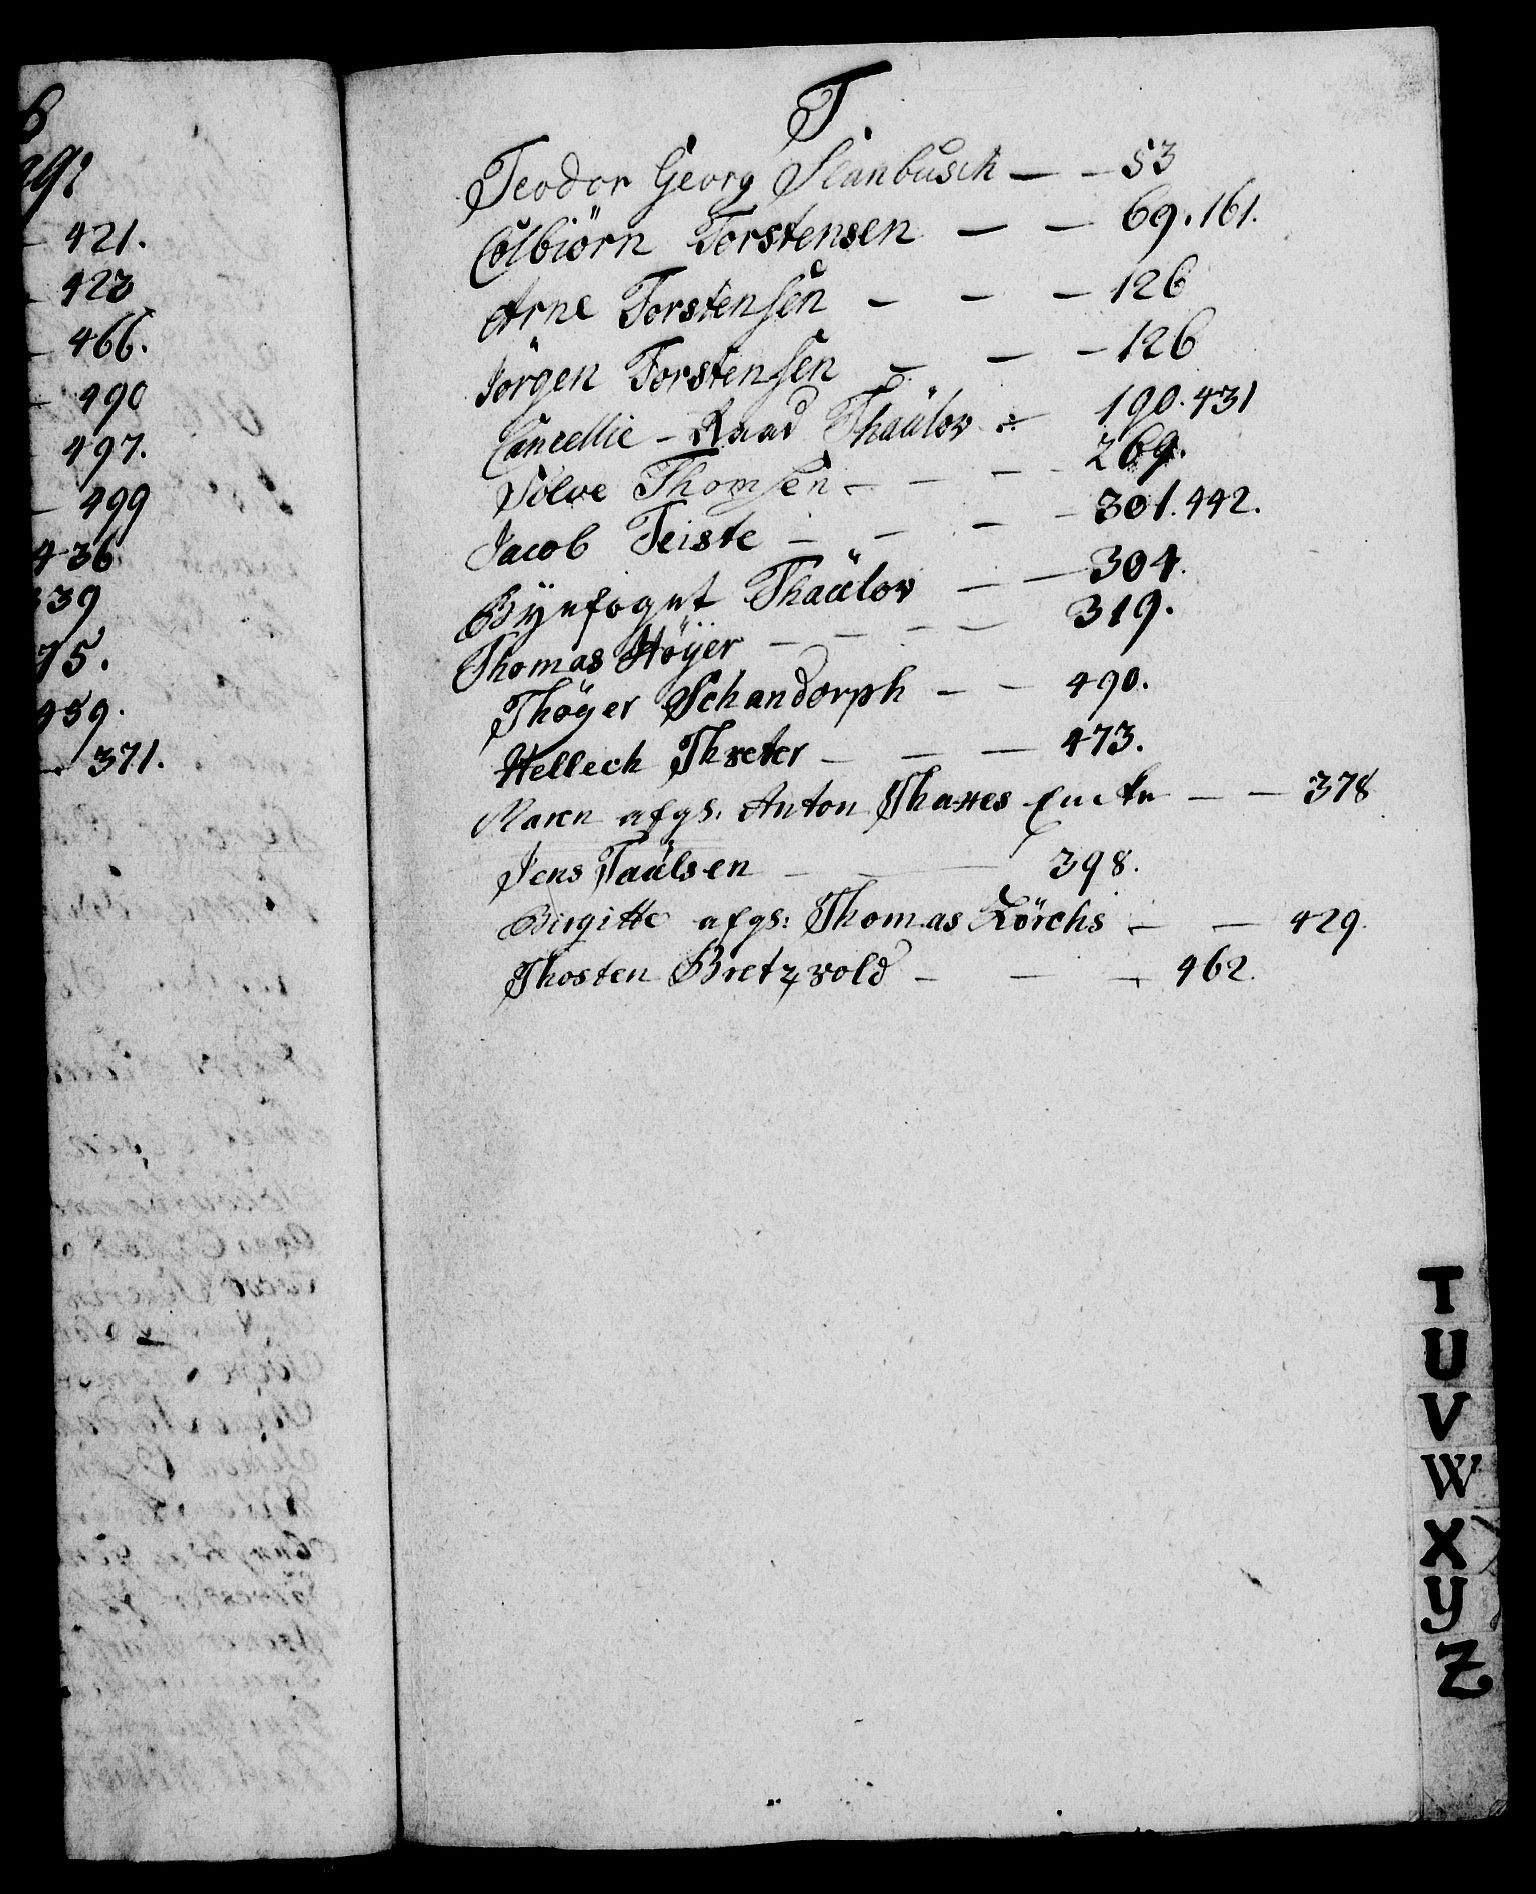 421.
423
466.
490
497.
499
436
39
75.
459.
371.
T
Teodor Georg Slanbusch — — 53
Colbiörn Torstensen — — 69.161.
Arne Torstensen — — — 126
Jörgen Torstensen — — — 126
Cancellie-Raad Thaülov — 190.431
Sölve Thomsen — — — 269.
Jacob Teiste — — — — 301.442.
Byefogut Thaülov — — 304.
Thomas Höyer — — — — 319.
Thöger Schandorph — — 490.
Helleck Threter — — — 473.
Maren afgs. Anton Thanes Encke — — 378
Jens Taülsen — — — 398.
Birgitte afgs: Thomas Lörchs — — 429.
Thosten Bretzvold — — — 462.
T
U
V
W
X
Y
Z